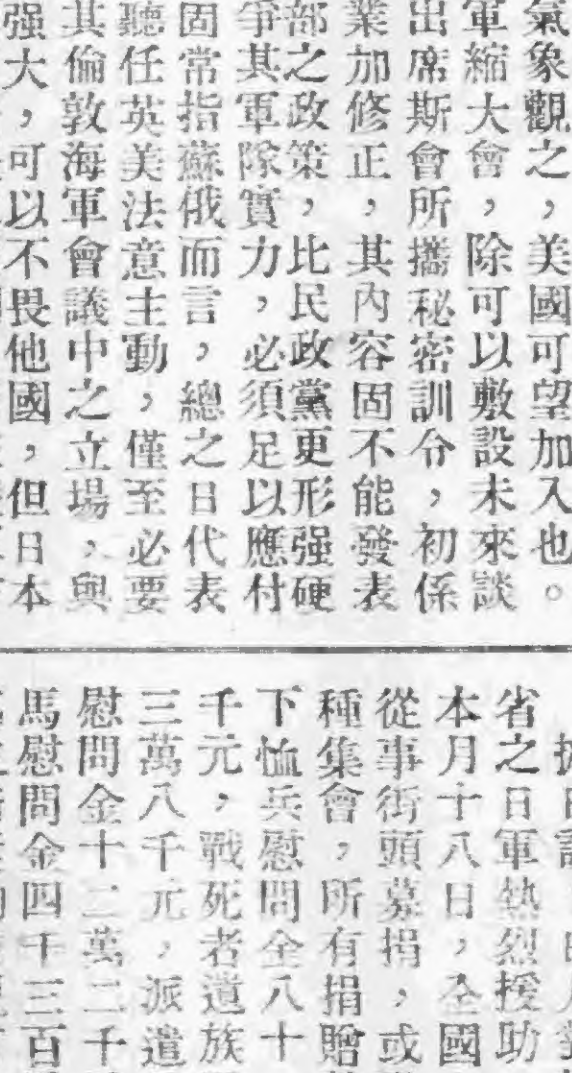 氣象觀之，美國可望加入也。
軍縮大會，除可以敷設未來談
出席斯會所攜秘密訓令，初係
業加修正，其內容固不能發表
部之政策，比民政黨更形强硬
爭其軍隊實力，必須足以應付
固常指蘇俄而言，總之日代表
聽任英美法意主動，僅至必要
其倫敦海軍會議中之立場，與
强大，可以不畏他國，但日本
省之日軍熱烈援助
本月十八日，全國
從事街頭募捐，或
種集會，所有捐贈
下恤兵慰問金八十
千元，戰死者遺族
三萬八千元，派遣
慰問金十二萬二千
馬慰問金四千三百